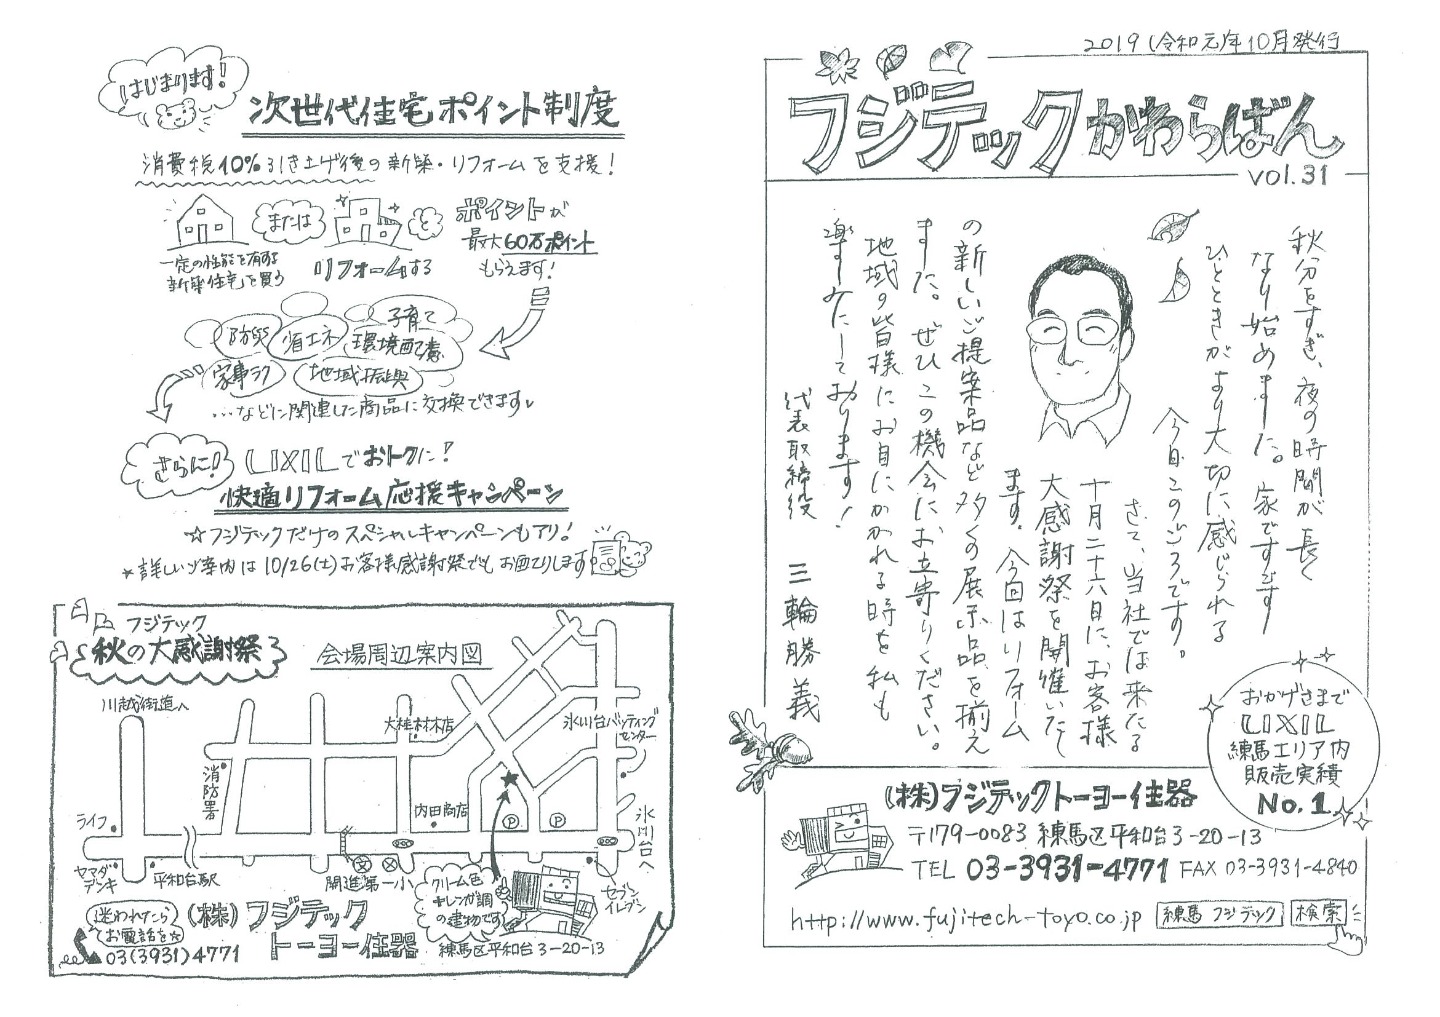 2019(令和元)年10月発行
フジテックかわらばん
vol.31
秋分をすぎ、夜の時間が長く
なり始めました。家ですごす
ひとときがより大切に感じられる
今日このごろです。
さて、当社では来たる
十月二十六日に、お客様
大感謝祭を開催いたし
ます。今回はリフォーム
の新しいご提案品など多くの展示品を揃え
ました。ぜひこの機会にお立寄りください。
地域の皆様にお目にかかれる時を私も
楽しみにしております!
代表取締役 三輪勝義
おかげさまで
LIXIL
練馬エリア内
販売実績
No.1
(株)フジテックトーヨー住器
〒179-0083 練馬区平和台3-20-13
TEL 03-3931-4771 FAX 03-3931-4840
http://www.fujitech-toyo.co.jp 練馬 フジテック 検索
はじまります!
次世代住宅ポイント制度
消費税10%引き上げ後の新築・リフォームを支援!
または
一定の性能を有する
新築住宅を買う
リフォームする
と
ポイントが
最大60万ポイント
もらえます!
防災
省エネ
子育て
環境配慮
家事ラク
地域振興
…などに関連した商品に交換できます
さらに!
LIXILでおトクに!
快適リフォーム応援キャンペーン
☆フジテックだけのスペシャルキャンペーンもアリ!
★詳しいご案内は10/26(土)お客様感謝祭でもお配りします
フジテック
秋の大感謝祭
会場周辺案内図
川越街道へ
大桂材木店
氷川台バッティング
センター
消防署
内田商店
ライフ
P
P
氷川台へ
ヤマダ
デンキ
平和台駅
文
開進第一小
セブン
イレブン
クリーム色
+レンガ調
の建物です
迷われたら
お電話を☆
03(3931)4771
(株)フジテック
トーヨー住器
練馬区平和台3-20-13